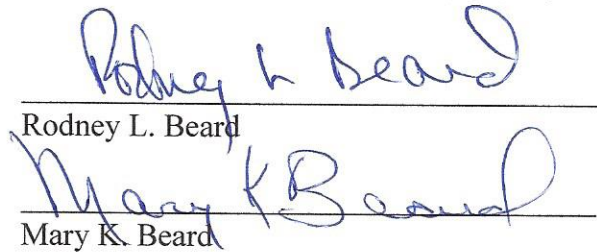 Rodney L Beard
Rodney L. Beard
Mary K Beard
Mary K. Beard